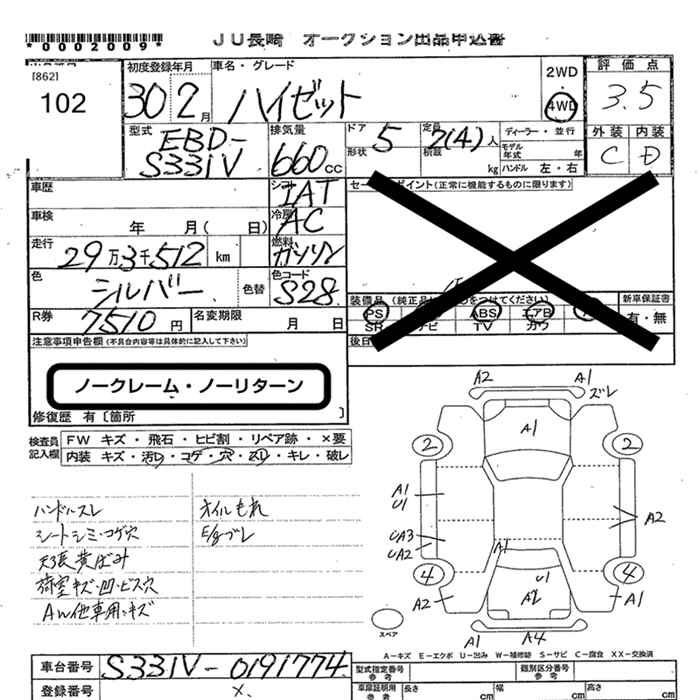 *0002009*
JU長崎 オークション出品申込書
[862]
102
初度登録年月
30年2月
車名・グレード
ハイゼット
2WD
4WD
評価点
3.5
外装 内装
C D
型式
EBD-
S331V
排気量
660cc
ドア
形状
5
定員
2(4)人
積載
kg
ディーラー・並行
モデル
年式 年
ハンドル 左・右
車歴
シフト
IAT
車検
年 月( 日)
冷房
AC
走行
29万3千512 km
燃料
ガソリン
色
シルバー
色替
色コード
S28
R券
7510円
名変期限
月 日
(正常に機能するものに限ります)
装備品
PS
ABS
エアB
SR
TV
カワ
新車保証書
有・無
注意事項申告欄(不具合内容等は具体的に記入して下さい)
ノークレーム・ノーリターン
修復歴 有〔箇所 〕
検査員
記入欄
FW キズ・飛石・ヒビ割・リペア跡・×要
内装 キズ・汚れ・コゲ・穴・スリ・キレ・破レ
ハンドルスレ
シートシミ・コゲ穴
天張黄ばみ
荷室キズ・凹・ビス穴
AW他車用・キズ
オイルもれ
E/gブレ
A2
A1
ズレ
A1
2
2
A1
U1
A2
UA3
UA2
A1
4
4
U1
A2
A2
A1
A1
A4
スペア
A-キズ E-エクボ U-凹み W-補修跡 S-サビ C-腐食 XX-交換済
車台番号
S331V-0191774
登録番号
×
型式指定番号
参考
類別区分番号
参考
車庫証明用
参考
長さ
cm
幅
cm
高さ
cm